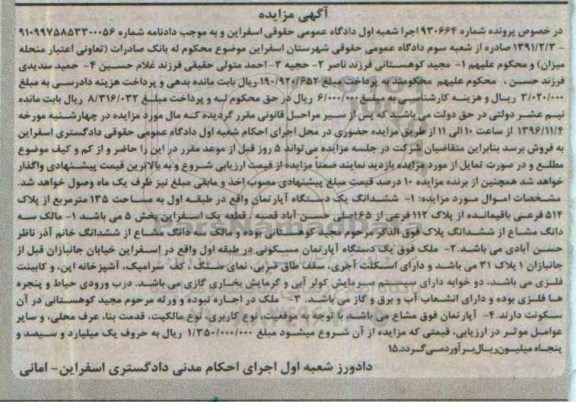 آگهی مزایده
در خصوص پرونده شماره ۹۳۰۶۶۴اجرا شعبه اول دادگاه عمومی حقوقی اسفراین و به موجب دادنامه شماره ۹۱۰۹۹۷۵۸۵۳۳۰۰۰۵۶
- ۱۳۹۱/۲/۳ صادره از شعبه سوم دادگاه عمومی حقوقی شهرستان اسفراین موضوع محکوم له بانک صادرات (تعاونی اعتبار منحله
میزان) و محکوم علیهم ۱- مجید کوهستانی فرزند ناصر ۲- حجیه ۳- احمد متولی حقیقی فرزند غلام حسین ۴- حمید سدیدی
فرزند حسن ، محکوم علیهم محکومند به پرداخت مبلغ ۱۹۰/۹۲۰/۶۵۲ ریال بابت مانده بدهی و پرداخت هزینه دادرسی به مبلغ
۳/۰۲۰/۰۰۰ ریال و هزینه کارشناسی به مبلغ ۶/۰۰۰/۰۰۰ ریال در حق محکوم له و پرداخت مبلغ ۸/۳۱۶/۰۳۲ ریال بابت مانده
نیم عشر دولتی در حق دولت می‌باشد که پس از سیر مراحل قانونی مقرر گردیده که مال مورد مزایده در چهارشنبه مورخه
۱۳۹۶/۱۱/۴ از ساعت ۱۰ الی ۱۱ از طریق مزایده حضوری در محل اجرای احکام شعبه اول دادگاه عمومی حقوقی دادگستری اسفراین
به فروش برسد بنابراین متقاضیان شرکت در جلسه مزایده می‌تواند ۵ روز قبل از موعد مقرر در این را حاضر و از کم و کیف موضوع
مطلع و در صورت تمایل از مورد مزایده بازدید نمایند ضمنا مزایده از قیمت ارزیابی شروع و به بالاترین قیمت پیشنهادی واگذار
خواهد شد همچنین از برنده مزایده ۱۰ درصد قیمت مبلغ پیشنهادی مصوب اخذ و مابقی مبلغ نیز ظرف یک ماه وصول خواهد شد.
مشخصات اموال مورد مزایده: ۱- ششدانگ یک دستگاه آپارتمان واقع در طبقه اول به مساحت ۱۳۵ مترمربع از پلاک
۵۱۴ فرعی باقیمانده از پلاک ۱۱۲ فرعی از ۱۶۵اصلی حسن آباد قصبه قطعه یک اسفراین بخش ۵ می باشد ۱- مالک سه
دانگ مشاع از ششدانگ پلاک فوق الذکر مرحوم مجید کوهستانی بوده مالک سه دانگ مشاع از ششدانگ خانم آذر ناظرات
حسن آبادی می باشد. ۲- ملک فوق یک دستگاه آپارتمان مسکونی در طبقه اول واقع در اسفراین خیابان جانبازان قبل از
جانبازان ۱ پلاک ۳۱ می باشد و دارای اسکلت آجری، سقف طاق ضربی، نمای سنگ، کف سرامیک، آشپزخانه اپن، و کابینت
فلزی می باشد. دو خوابه دارای سیستم سرمایش کولر آبی و گرمایش بخاری گازی می باشد. درب ورودی حیاط و پنجره
ها فلزی بوده و دارای انشعاب آب و برق و گاز می باشد. ۳- ملک در اجاره نبوده و ورثه مرحوم مجید کوهستانی در آن
سکونت دارند. ۴- آپارتمان فوق مشاع می باشد با توجه به موقعیت، نوع کاربری، نوع مالکیت، قدمت بنا، عرف محلی، و سایر
عوامل موثر در ارزیابی، قیمتی که مزایده از آن شروع میشود مبلغ ۱/۳۵۰/۰۰۰/۰۰۰ ریال به حروف یک میلیارد و سیصد و
پنجاه میلیون ریال برآورد می گردد.۱۵
دادورز شعبه اول اجرای احکام مدنی دادگستری اسفراین- امانی